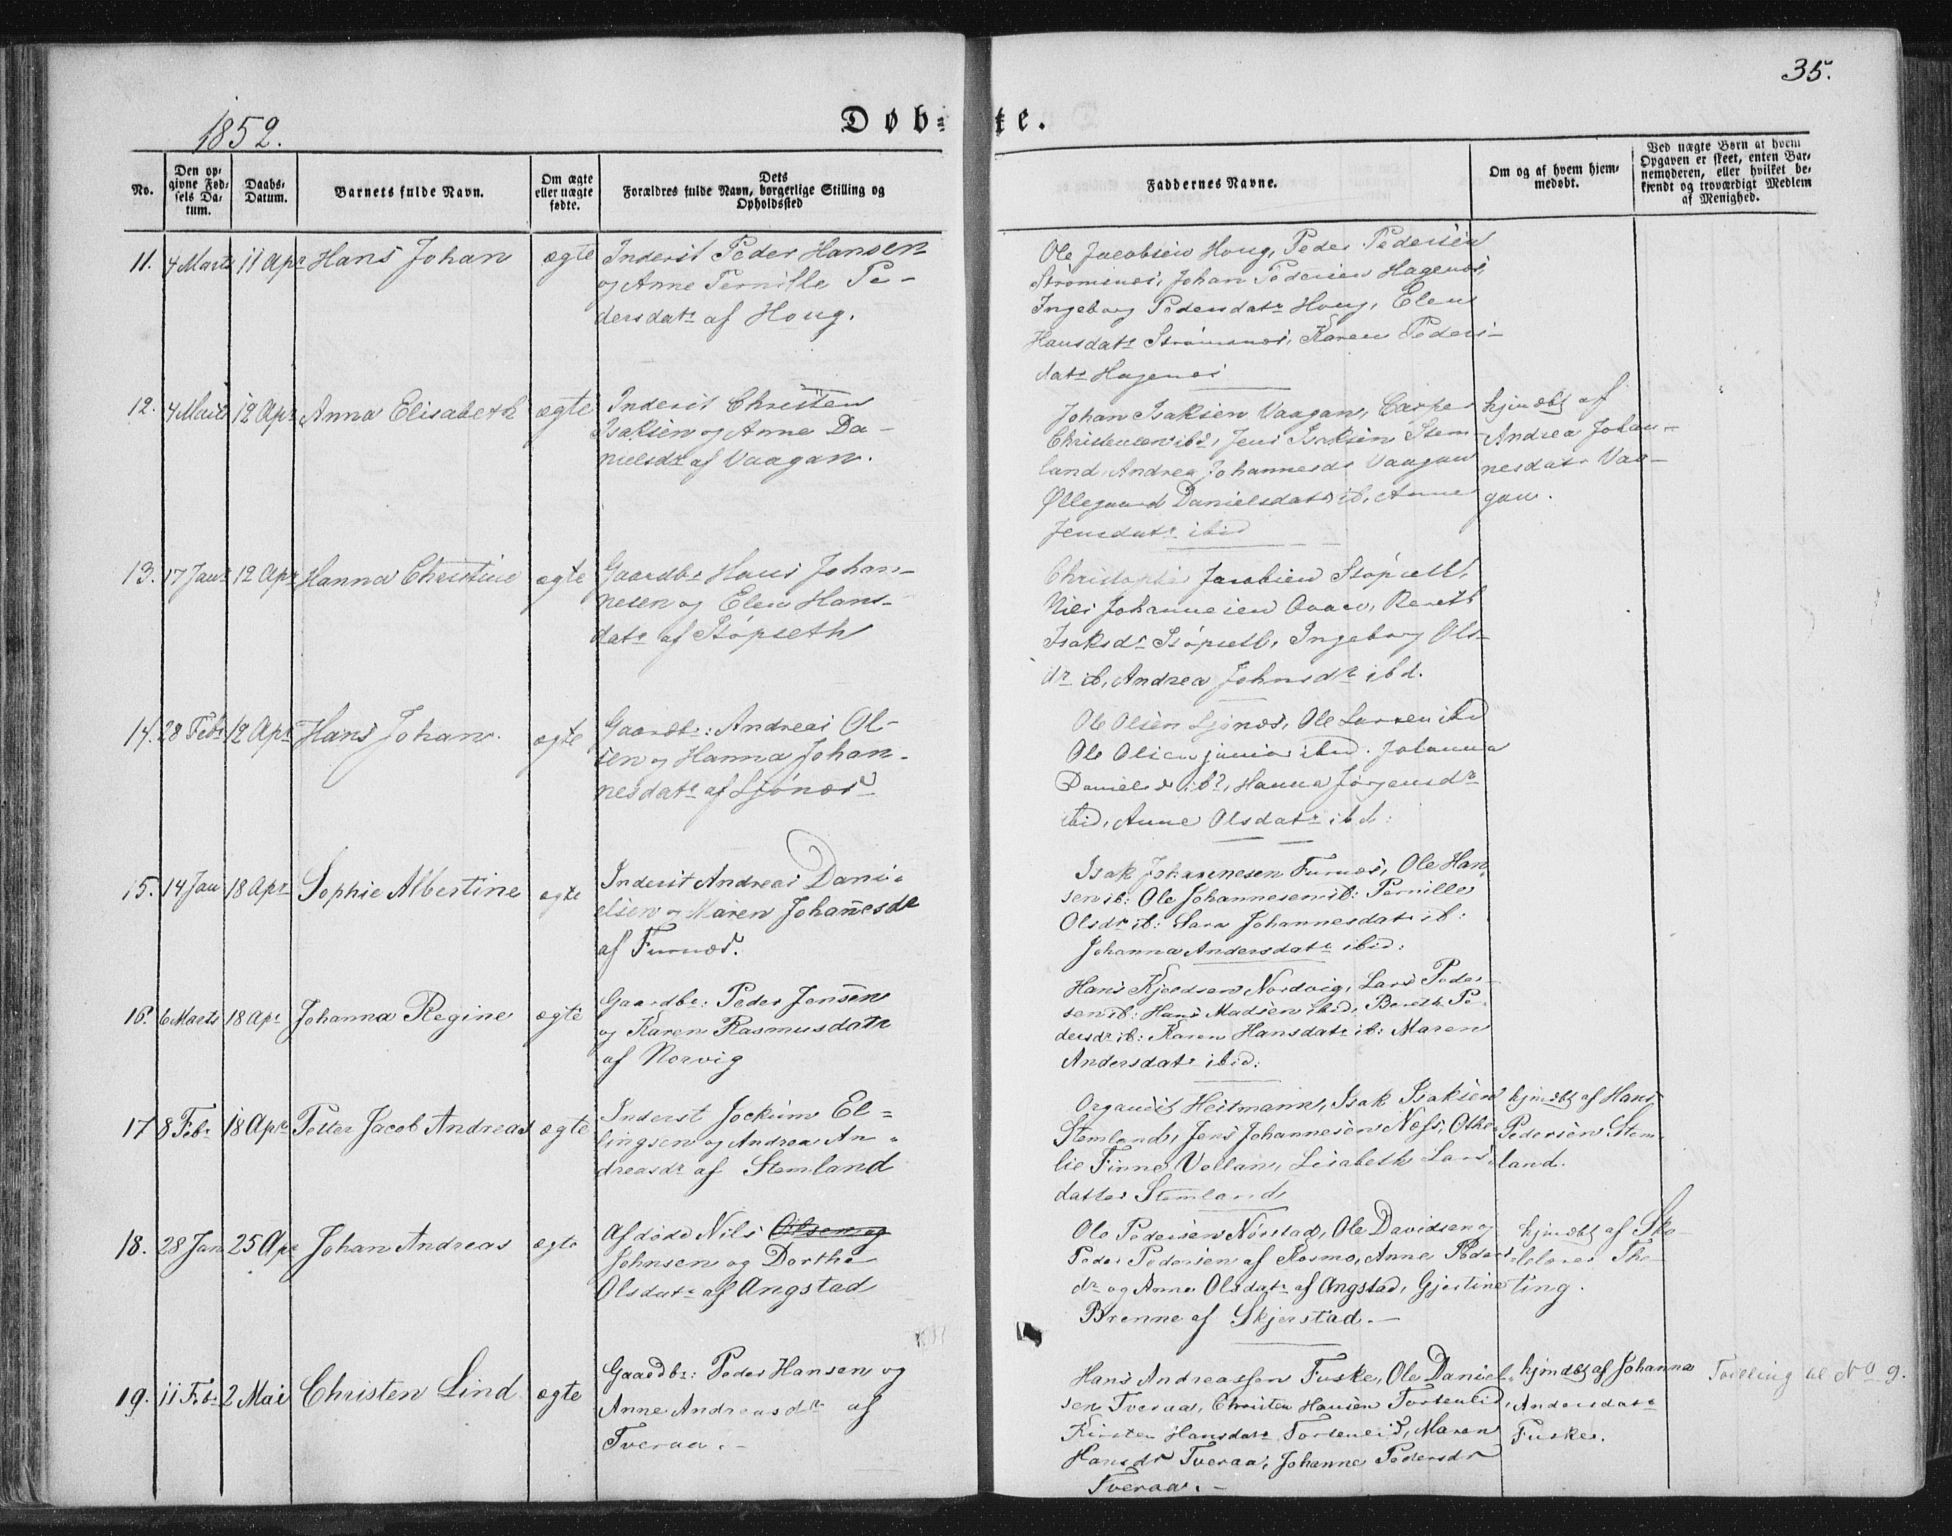 35.
1852.
Døb-te.
No.
Den op-
givne Fød-
sels Da-
tum.
Daabs-
Datum.
Barnets fulde Navn.
Om ægte
eller uægte
fødte.
Dets
Forældres fulde Navn, borgerlige Stilling og
Opholdssted
Faddernes Navne.
Om og af hvem hjem-
medøbt.
Ved uægte Børn at hvem
Opgaven er skeet, enten Bar-
nemoderen, eller hvilket be-
kjendt og troværdigt Medlem
af Menighed.
11. 4 Marts 11 Apr Hans Johan ægte
Inderst Peder Hansen
og Anne Pernille Pe-
dersdatr af Houg.
Ole Jacobsen Houg, Peder Pedersen
Strømsnæs, Johan Pedersen Hagenæs,
Ingeborg Pedersdatr Houg, Elen
Hansdatr Strømsnæs, Karen Peders-
datr Hagenæs
12. 4 Marts 12 Apr Anna Elisabeth ægte
Inderst Christen
Isaksen og Anne Da-
nielsdr af Vaagan.
Johan Isaksen Vaagan, Casper
Christensen ibd, Jens Isaksen Stem-
land, Andrea Johannesdr Vaagan
Øllegaard Danielsdatr ib, Anne
Jensdatr ibid
hjmdbt af
Andrea Johan-
nesdatr Vaa-
gan.
13. 17 Janr 12 Apr Hanna Christine ægte
Gaardbr Hans Johan-
nesen og Elen Hans-
datr af Støpseth
Jacobsen Støpseth,
Nils Johannesen Bereth
Isaksdr Støpseth, Ingeborg Ols-
dr ib, Andrea Johnsdr ibd.
14. 28 Febr 12 Apr Hans Johan. ægte
Gaardbr: Andreas Ol-
sen og Hanna Johan-
nesdatr af Ljønæs
Ole Olsen Ljønæs, Ole Larsen ibd
Ole Olsen junior ibid. Johanna
Danielsd ibd, Hanna Jørgensdr
ibid, Anne Olsdatr ibd:
15. 14 Jan 18 Apr Sophie Albertine ægte
Inderst Andreas Dani-
elsen og Maren Johanesdr
af Furnæs.
Isak Johannesen Furnæs, Ole Han-
sen ib: Ole Johannesen ib: Pernille
Olsdr ib: Sara Johannesdatr ib:
Johanna Andersdatr ibid:
16. 6 Marts 18 Apr Johanna Regine ægte
Gaardbr: Peder Jensen
og Karen Rasmusdatr
af Norvig
Hans Kjeldsen Nordvig, Lars Peder-
sen ib: Hans Madsen ibid, Bereth Pe-
dersdr ib: Karen Hansdatr ib: Maren
Andersdatr ibid:
17 8 Febr 18 Apr Petter Jacob Andreas ægte
Inderst Jockum El-
lingsen og Andrea An-
dreasdr af Stemland
Organist Heitmann, Isak Isaksen
Stemland, Jens Johannesen Næss, Othe-
lie Finne Vollan, Lisabeth Lars-
datter Stemland
hjmdbt af Hans
Pedersen Stem-
land.
18. 28 Jan 25 Apr Johan Andreas ægte
Afdøde Nils Olsen og
Johnsen og Dorthe
Olsdatr af Angstad
Ole Pedersen Nørstad, Ole Davidsen og
Peder Pedersen af Kosmo, Anne Peders-
dr og Anne Olsdatr af Angstad, Gjertine
Brenne af Skjerstad.-
hjmdbt af Sko-
lelærer The-
ting.
19. 11 Febr 2 Mai Christen Lind ægte
Gaardbr: Peder Hansen og
Anne Andreasdr af
Tveraa.-
Hans Andreassen Fuske, Ole Daniel-
sen Tveraa, Christen Hansen Torsenlid,
Kirsten Hansdatr Torsenlid, Maren
Hansdr Tveraa, Johanne Pedersdr
Tveraa.-
hjmdbt af Johanna
Andersdatr
Fuske.
Tvilling til No 9.